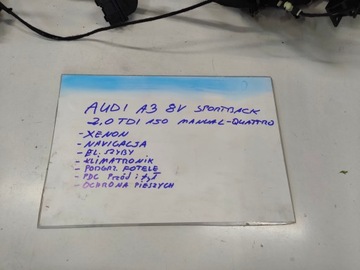 AUDI A3 8V SPORTBACK
2,0 TDI 150 MANUAL-QUATTRO
- XENON
- NAVIGACJA
- EL. SZYBY
- KLIMATRONIK
- PODGRZ. FOTELE
- PDC PRZÓD i TYŁ
- OCHRONA PIESZYCH